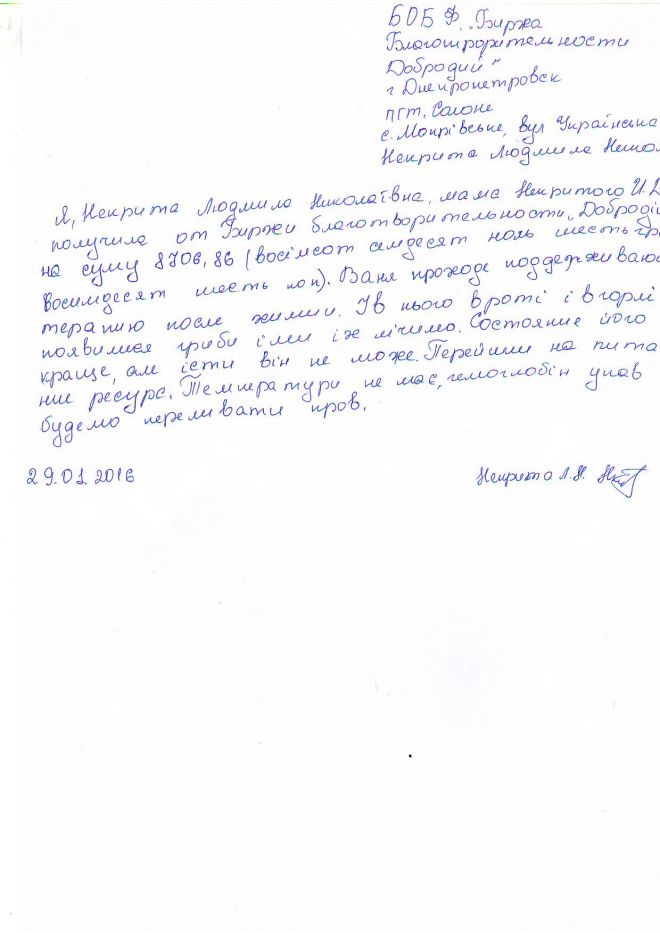 БОБФ „Биржа
Благотворительности
Добродий"
г Днепропетровск
пгт. Солоне
с. Мопрівське, вул Українська
Некрита Людмила Никол
Я, Некрита Людмила Николаївна, мама Некритого И.Д
получила от Биржи благотворительности „Добродій
на суму 8706,86 (восімсот семдесят ноль шесть гри
восимдесят шесть коп). Ваня проходе поддерживаю
терапию после химии. Ів нього в роті і в горлі
появилися гриби і ми їх лічимо. Состояние його
краще, але їсти він не може. Перейшли на пита
ние ресурс. Температури не має, гемоглобін упав
будемо переливати кров.
29.01.2016
Некрита Л.Н.